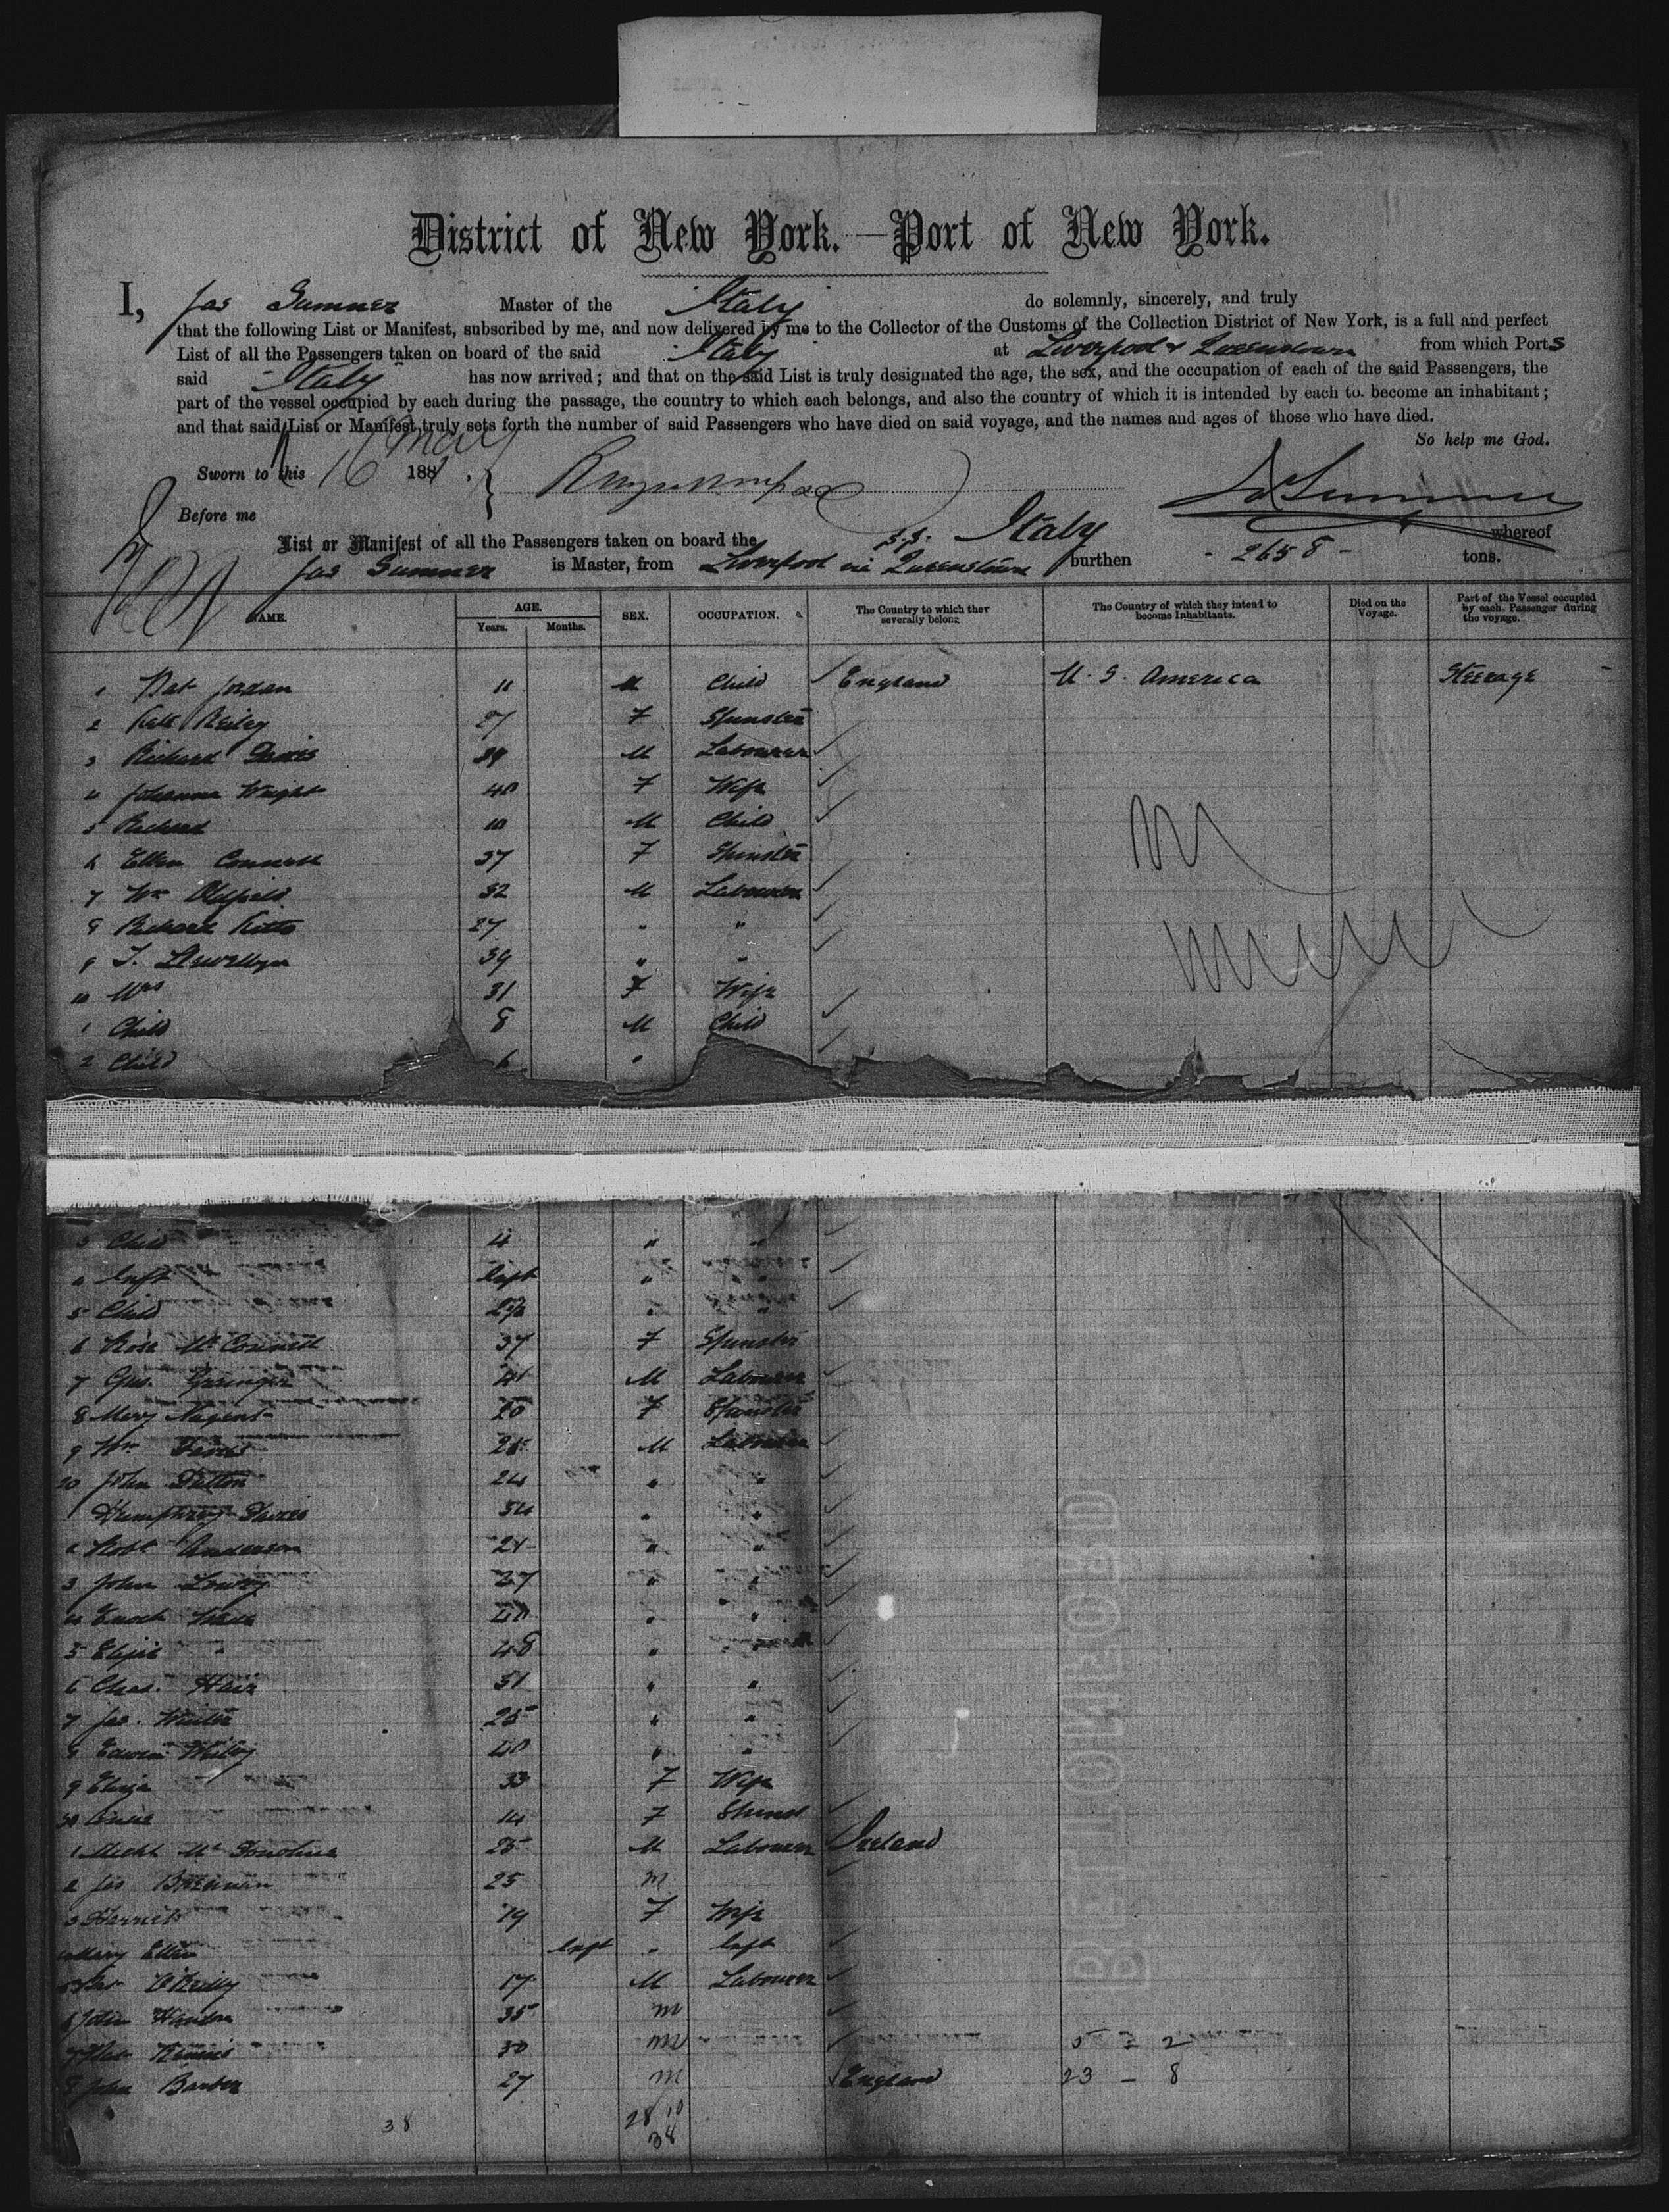 District of New York.—Port of New York.
I, Jas Sumner Master of the "Italy" do solemnly, sincerely, and truly
that the following List or Manifest, subscribed by me, and now delivered by me to the Collector of the Customs of the Collection District of New York, is a full and perfect
List of all the Passengers taken on board of the said "Italy" at Liverpool & Queenstown from which Ports
said "Italy" has now arrived; and that on the said List is truly designated the age, the sex, and the occupation of each of the said Passengers, the
part of the vessel occupied by each during the passage, the country to which each belongs, and also the country of which it is intended by each to become an inhabitant;
and that said List or Manifest truly sets forth the number of said Passengers who have died on said voyage, and the names and ages of those who have died.
So help me God.
Sworn to this 16 May 188
Jas Sumner
Before me
List or Manifest of all the Passengers taken on board the S.S. Italy whereof
Jas Sumner is Master, from Liverpool via Queenstown burthen - 2658 - tons.
NAME. AGE. Years. Months. SEX. OCCUPATION. The Country to which they severally belong. The Country of which they intend to become Inhabitants. Died on the Voyage. Part of the Vessel occupied by each Passenger during the voyage.
1 Nat Jordan 11 M Child England U. S. America Steerage
2 Kate Reiley 27 F Spinster
3 Richard Davis 39 M Labourer
4 Johanna Wright 40 F Wife
5 Richard 10 M Child
6 Ellen Connell 37 F Spinster
7 Wm Oldfield 32 M Labourer
8 Richard Kitto 27 " "
9 T. Llewellyn 39 " "
10 Mrs 31 F Wife
1 Child 8 M Child
2 Child 6 "
3 Child 4 " "
4 Inft Inft " "
5 Child " "
6 Rose McConnell 37 F Spinster
7 Geo. 41 M Labourer
8 Mary Nugent 20 F Spinster
9 Wm 25 M Labourer
20 John Dutton 24 " "
1 Humphrey 54 " "
2 Robt Anderson 24 " "
3 John Lowry 27 " "
4 Enoch 40 " "
5 " 48 " "
6 Chas. Hair 51 " "
7 Jas. Winter 25 " "
8 Edwin 40 " "
9 Eliza 33 F Wife
30 14 F Spinst
1 Michl 25 M Labourer Ireland
2 Jas Brennan 25 M
3 Harriet 19 F Wife
4 Mary Ellen Inft " Inft
5 Pat O'Reilly 17 M Labourer
6 John 35 M
7 30 M
8 John Barber 27 M England 23 - 8
38 28 10
38